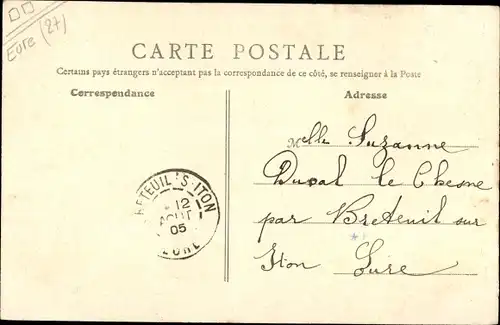 Eure (27)
CARTE POSTALE
Certains pays étrangers n'acceptant pas la correspondance de ce côté, se renseigner à la Poste
Correspondance
Adresse
Melle Suzanne
Duval le Chesne
par Breteuil sur
Iton Eure
BRETEUIL-S-ITON
12
AOUT
05
EURE